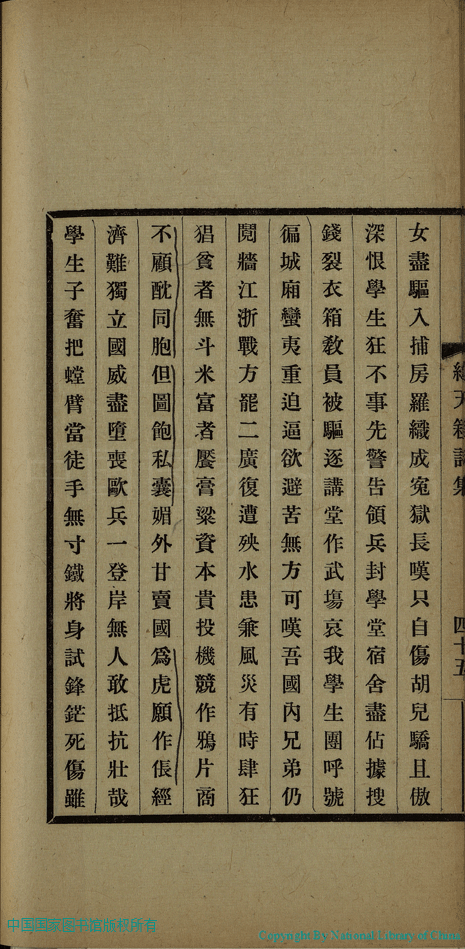 四十五
女盡驅入捕房羅織成寃獄長嘆只自傷胡兒驕且傲
深恨學生狂不事先警告領兵封學堂宿舍盡佔據搜
錢裂衣箱教員被驅逐講堂作武塲哀我學生團呼號
徧城廂蠻夷重迫逼欲避苦無方可嘆吾國內兄弟仍
鬩牆江浙戰方罷二廣復遭殃水患兼風災有時肆狂
猖貧者無斗米富者饜膏粱資本貴投機競作鴉片商
不顧酖同胞但圖飽私囊媚外甘賣國爲虎願作倀經
濟難獨立國威盡墮喪歐兵一登岸無人敢抵抗壯哉
學生子奮把螳臂當徒手無寸鐵將身試鋒鋩死傷雖
中国国家图书馆版权所有
Copyright By National Library of China